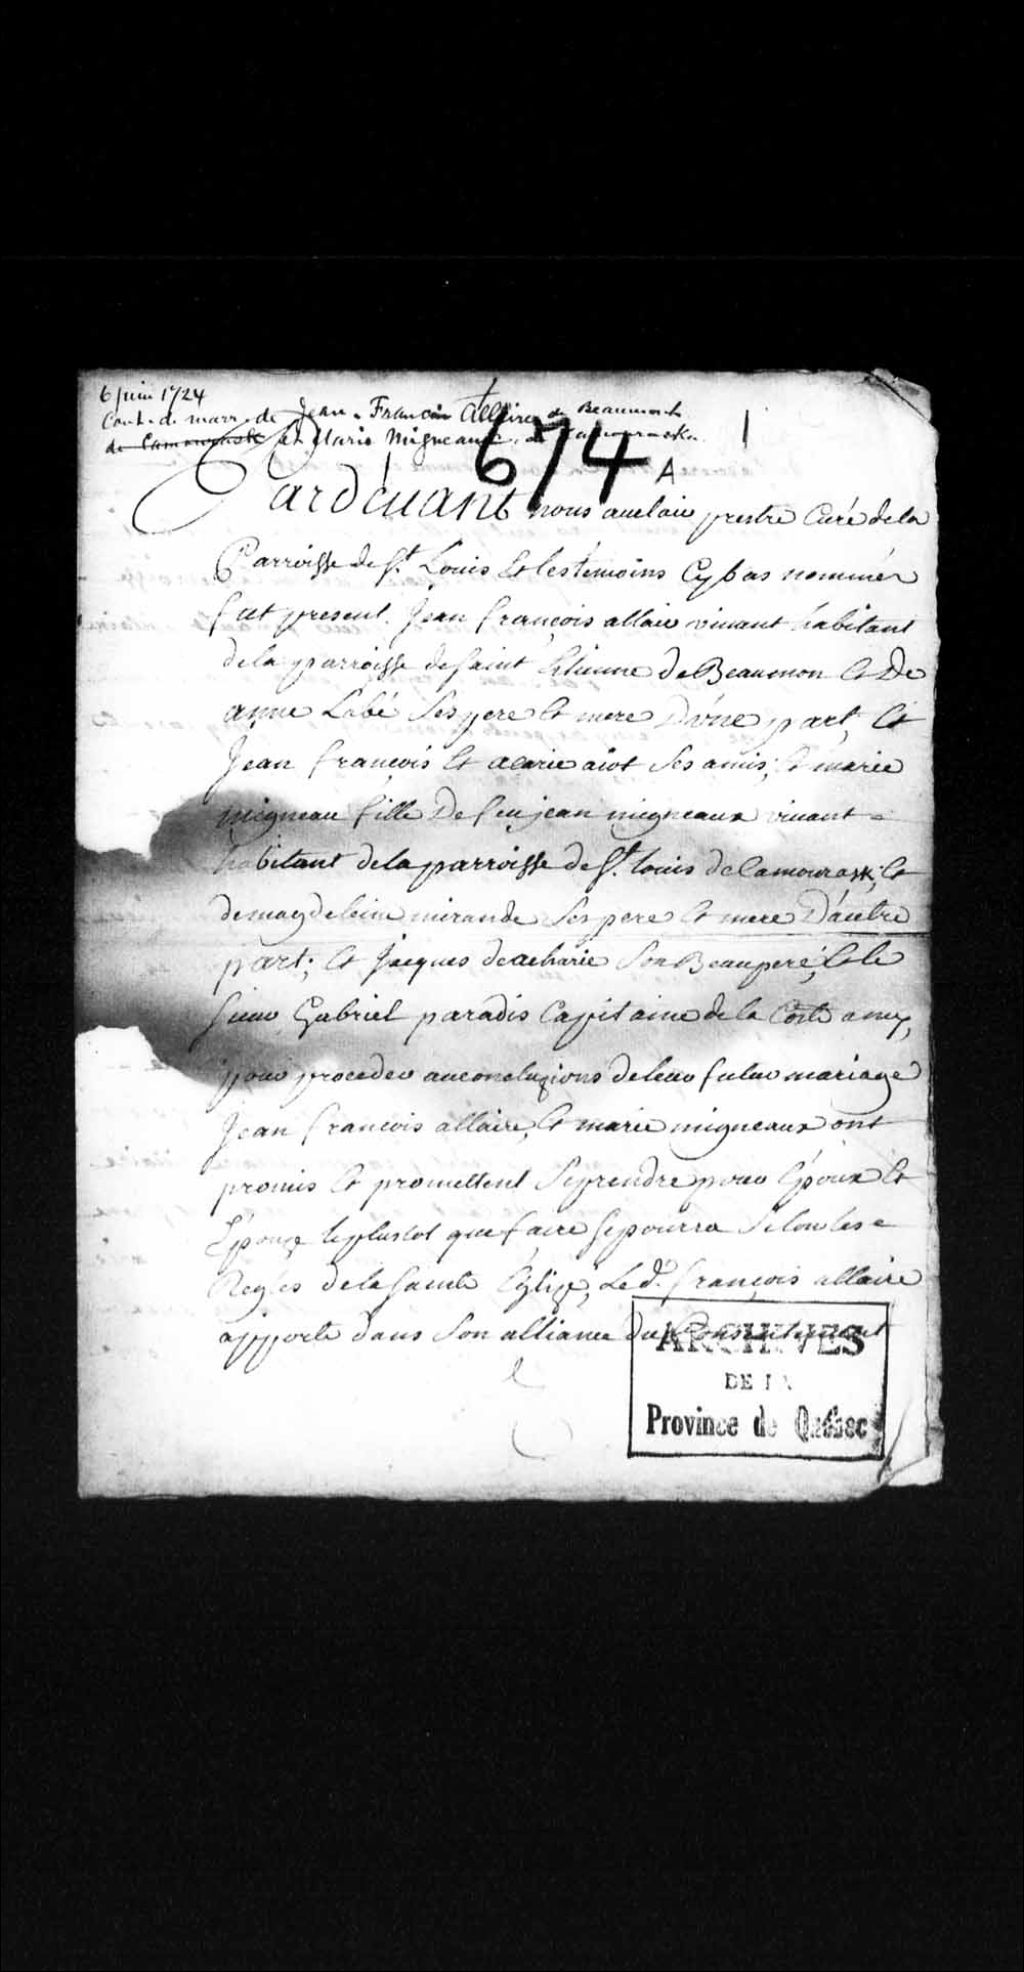 6 juin 1724
Cont. de marr. de Jean-Francois Allaire de Beaumont
de Camouraska et Marie Migneaux, de
674
A
1
Pardevant nous auclair prestre Curé dela
Parroisse de St. Louis Et les temoins Cy bas nommér
fut present. Jean françois allaire vivant habitant
dela parroisse de saint Etienne de Beaumon Et De
anne Labé Ses pere Et mere D'une part, Et
Jean françois Et aiot Ses amis; Et marie
migneau fille De feu jean migneaux vivant
habitant dela parroisse de St. Louis de Camourask, Et
demagdeleine mirande Ses pere Et mere D'autre
part; Et Jacques deacharie Son Beaupere, Et le
sieur Gabriel paradis Capitaine de la Coste amy,
pour proceder auconcluzions deleur futur mariage
Jean francois allaire, Et marie migneaux ont
promis Et promettent Seprendre pour Epoux Et
Epouze leplustot que faire sepourra Selon les
Regles dela sainte Eglize, Le d. françois allaire
apporte dans Son alliance Du Consentement
ARCHIVES
DE LA
Province de Québec